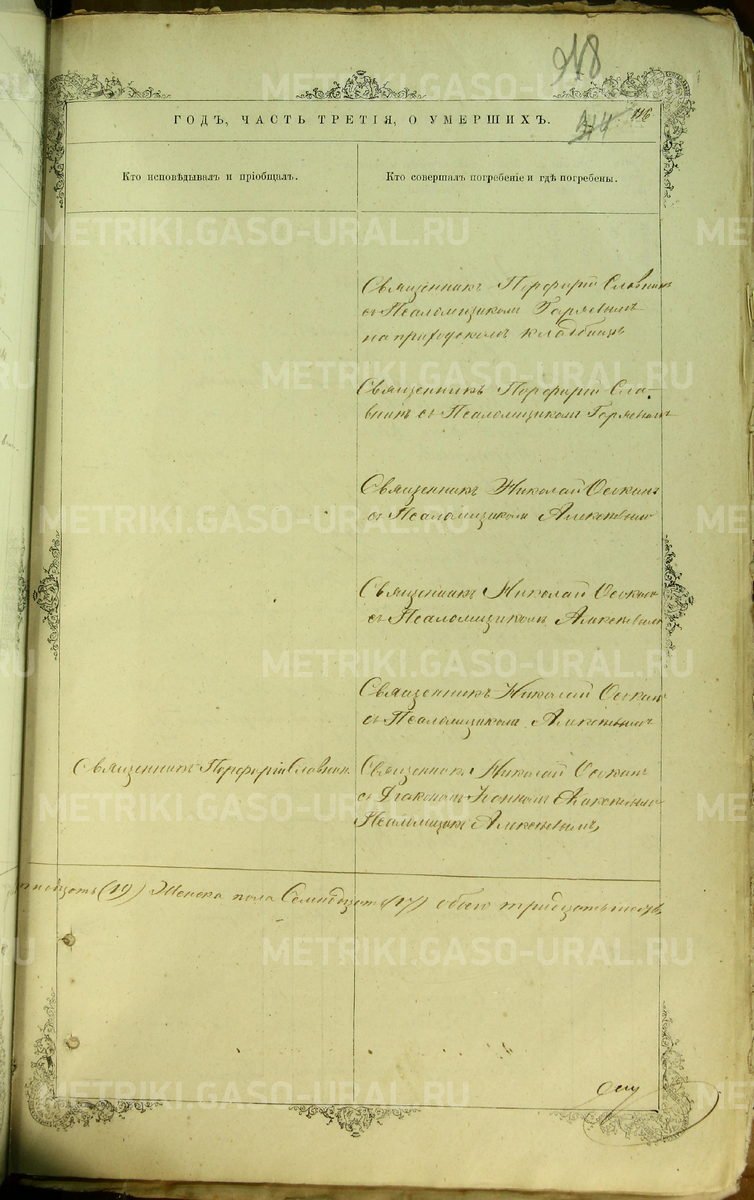 918
ГОДЪ, ЧАСТЬ ТРЕТІЯ, О УМЕРШИХЪ.
314
116
Кто исповѣдывалъ и пріобщалъ.
Кто совершалъ погребеніе и гдѣ погребены.
Священникъ Порфирій Славнинъ
съ Псаломщикомъ Горяевымъ
на приходскомъ кладбищѣ
Священникъ Порфирій Сла-
внинъ съ Псаломщикомъ Горяевымъ
Священникъ Николай Оскинъ
съ Псаломщикомъ Алексѣевымъ
Священникъ Николай Оскинъ
съ Псаломщикомъ Алексѣевымъ
Священникъ Николай Оскинъ
съ Псаломщикомъ Алексѣевымъ
Священникъ Порфирій Славнинъ
Священникъ Николай Оскинъ
съ Діакономъ
Псаломщик Алексѣевымъ
(19) Женска пола Семнадцать (17) обоего тридцать шесть
METRIKI.GASO-URAL.RU